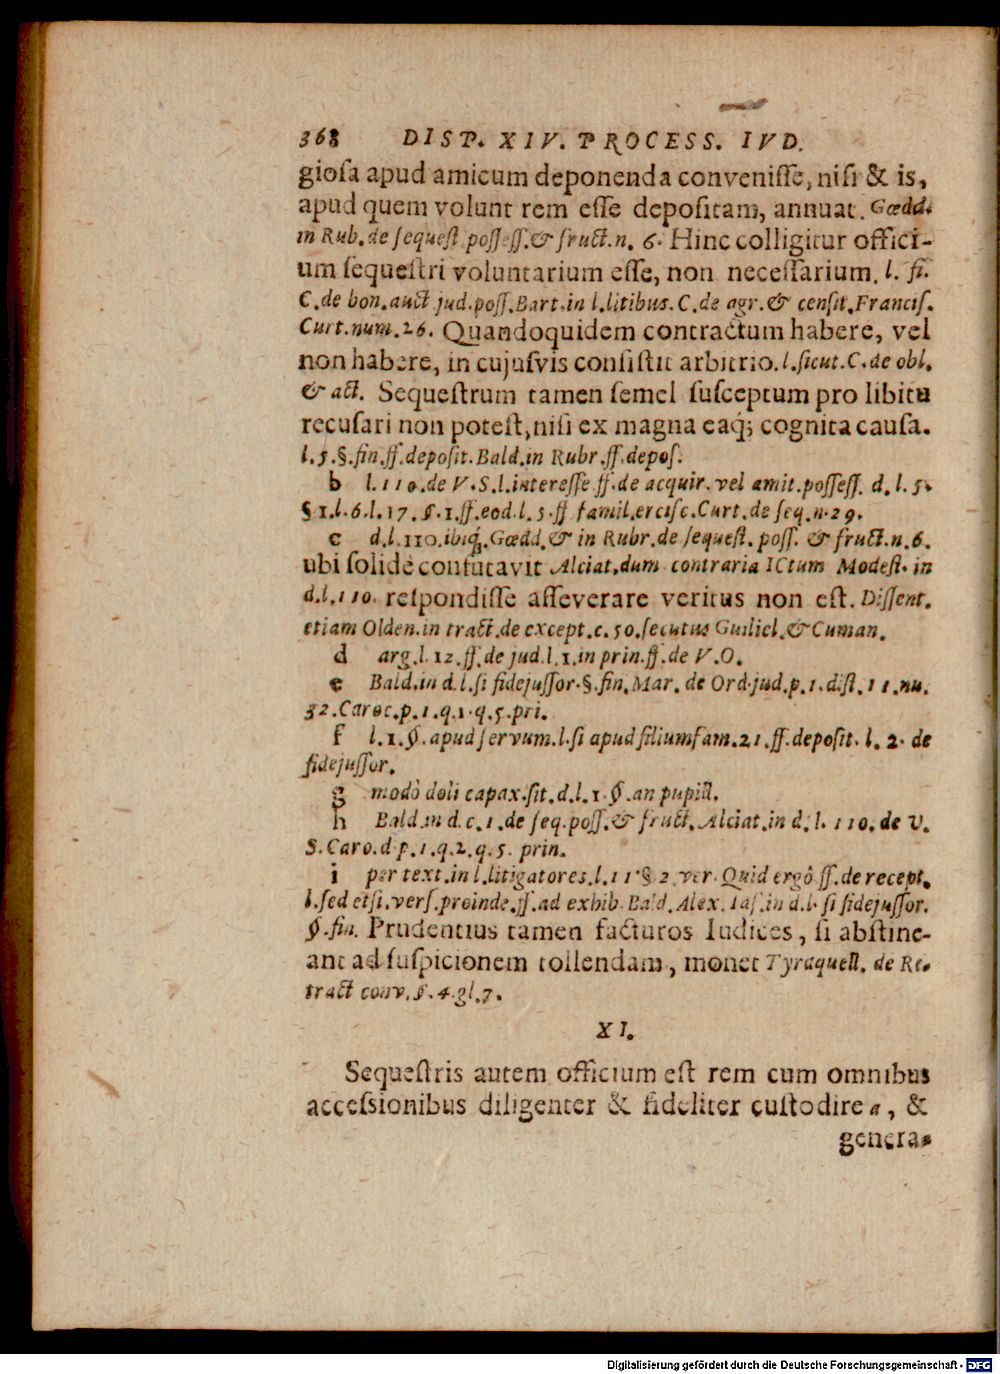 368 DISP. XIV. PROCESS. IVD.
gioſa apud amicum deponenda conveniſſe, niſi & is,
apud quem volunt rem eſſe depoſitam, annuat. Gœdd.
in Rub. de ſequeſt. poſſeſſ. & fruct. n. 6. Hinc colligitur offici-
um ſequeſtri voluntarium eſſe, non neceſſarium. l. fi.
C. de bon. auct jud. poſſ. Bart. in l. litibus. C. de agr. & cenſit. Franciſ.
Curt. num. 26. Quandoquidem contractum habere, vel
non habere, in cujuſvis conſiſtit arbitrio. l. ſicut. C. de obl.
& act. Sequeſtrum tamen ſemel ſuſceptum pro libitu
recuſari non poteſt, niſi ex magna eaq́; cognita cauſa.
l. 5. §. fin. ff. depoſit. Bald. in Rubr. ff. depoſ.
b l. 110. de V. S. l. intereſſe ff. de acquir. vel amit. poſſeſſ. d. l. 5.
§ 1. l. 6. l. 17. §. 1. ff. eod. l. 5. ff famil. erciſc. Curt. de ſeq. n. 29.
c d. l. 110. ibiq́. Gœdd. & in Rubr. de ſequeſt. poſſ. & fruct. n. 6.
ubi ſolidè confutavit Alciat. dum contraria ICtum Modeſt. in
d. l. 110. reſpondiſſe aſſeverare veritus non eſt. Diſſent.
etiam Olden. in tract. de except. c. 50. ſecutus Guiliel. & Cuman.
d arg. l. 12. ff. de jud. l. 1. in prin. ff. de V. O.
e Bald. in d. l. ſi fidejuſſor. §. fin. Mar. de Ord. jud. p. 1. diſt. 11. nu.
32. Caroc. p. 1. q. 1. q. 5. pri.
f l. 1. §. apud ſervum. l. ſi apud filiumfam. 21. ff. depoſit. l. 2. de
fidejuſſor.
g modò doli capax. ſit. d. l. 1. §. an pupill.
h Bald. in d. c. 1. de ſeq. poſſ. & fruct. Alciat. in d. l. 110. de V.
S. Caro. d. p. 1. q. 2. q. 5. prin.
i per text. in l. litigatores. l. 11. § 2. ver. Quid ergò ff. de recept.
l. ſed etſi. verſ. proinde. ff. ad exhib. Bald. Alex. Iaſ. in d. l. ſi fidejuſſor.
§. fin. Prudentius tamen facturos Iudices, ſi abſtine-
ant ad ſuſpicionem tollendam, monet Tyraquell. de Re-
tract conv. §. 4. gl. 7.
XI.
Sequeſtris autem officium eſt rem cum omnibus
acceſsionibus diligenter & fideliter cuſtodire a, &
genera-
Digitalisierung gefördert durch die Deutsche Forschungsgemeinschaft - DFG